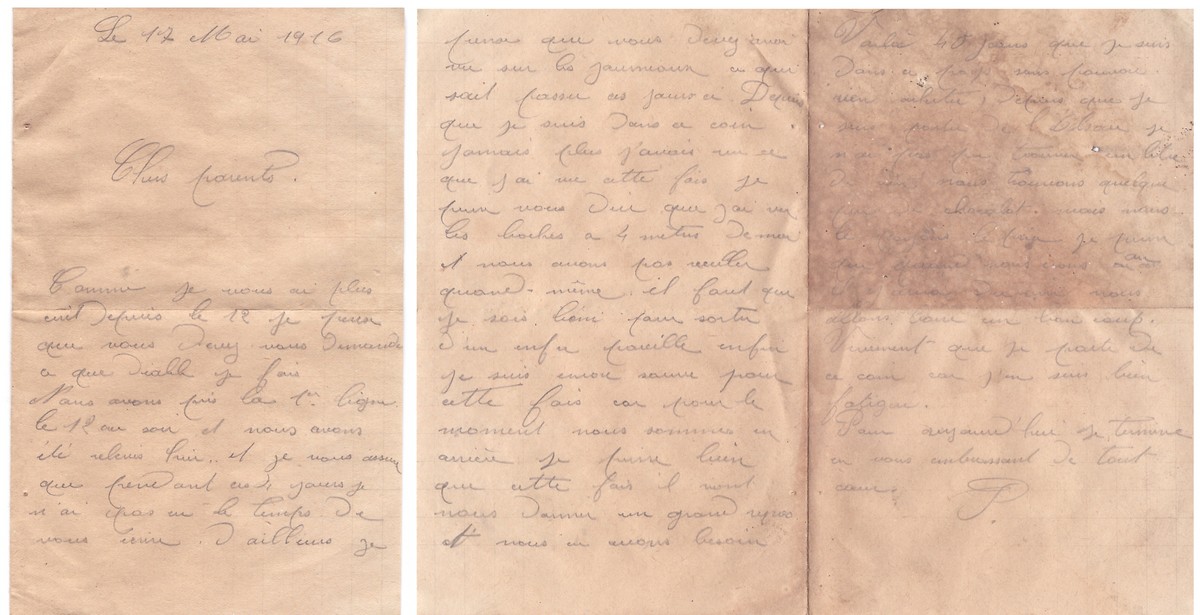 Le 17 Mai 1916
Chers parents.
Comme je vous ai plus
écrit depuis le 12 je pense
que vous devez vous demander
ce que diable je fais
Nous avons pris la 1ère ligne
le 12 au soir et nous avons
été relevés hier.. et je vous assure
que pendant ces 4 jours je
n'ai pas eu le temps de
vous écrire. D'ailleurs je
pense que vous devez avoir
vu sur les journeaux ce qui
sait passer ces jours-ci. Depuis
que je suis dans ce coin
jamais plus j'avais vu ce
que j'ai vu cette fois je
peux vous dire que j'ai vu
les boches a 4 metres de moi
et nous avons pas reculer
quand-même. il faut que
je sois béni pour sortir
d'un enfer pareille enfin
je suis encore sauvé pour
cette fois car pour le
moment nous sommes en
arrière je pense bien
que cette fois il vont
nous donner un grand repos
et nous en avons besoin
Voilà 40 jours que je suis
dans ce pays sans pouvoir
rien acheter, depuis que je
suis partie de l'Alsace je
n'ai pas pu trouver un litre
de vin nous trouvons quelque
peu de chocolat. mais nous
le je pense
que quand nous irons au
nous
allons boire un bon coup.
Vivement que je parte de
ce coin car j'en suis bien
fatigué.
Pour aujourd'hui je termine
en vous embrassant de tout
cœur.